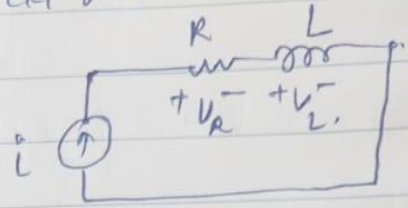 R L
+ V_R - + V_L -
i